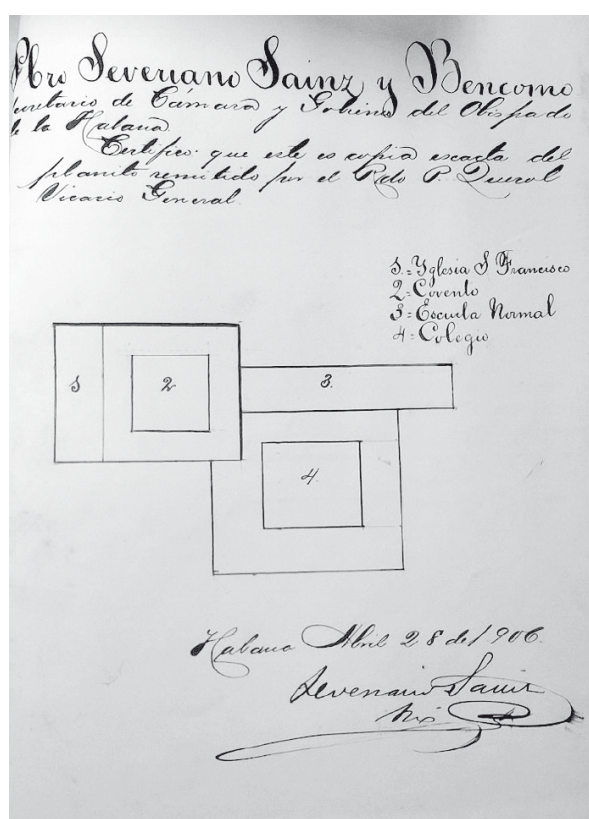 Pbro Severiano Sainz y Bencomo
ecretario de Cámara y Gobierno del Obispado
de la Habana
Certifico: que este es copia exacta del
planito remitido por el Rdo P. Querol
Vicario General.
1.=Yglesia S Francisco
2=Covento
3=Escuela Normal
4=Colegio
1
2
3.
4
Habana Abril 28 de 1906.
Severiano Sainz